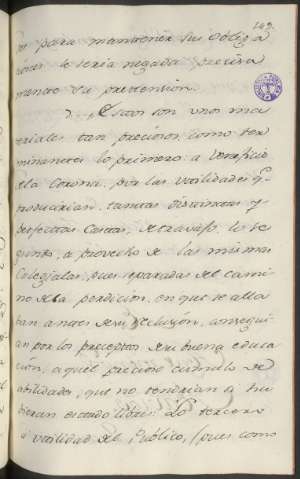 149.
por para mantener su obliga
ciones le sería negada precisa
mente su pretension.
Estos son unos ma
teriales tan preciosos, como ter
minantes lo primero a beneficio
dela Corona, por las utilidades q.e
producirian tantas distinctas y
perfectas Castas, de travajo, lo se
gundo, a provecho de las mismas
Colegialas, pues separadas del cami
no dela perdicion, en que se alla
ban antes de su reclusion, consegui
an por los preceptos de su buena educa
cion, aquel precioso cumulo de
abilidades, que no tendrian si hu
bieran estado libres. Lo tercero
a utilidad del Publico, (pues como